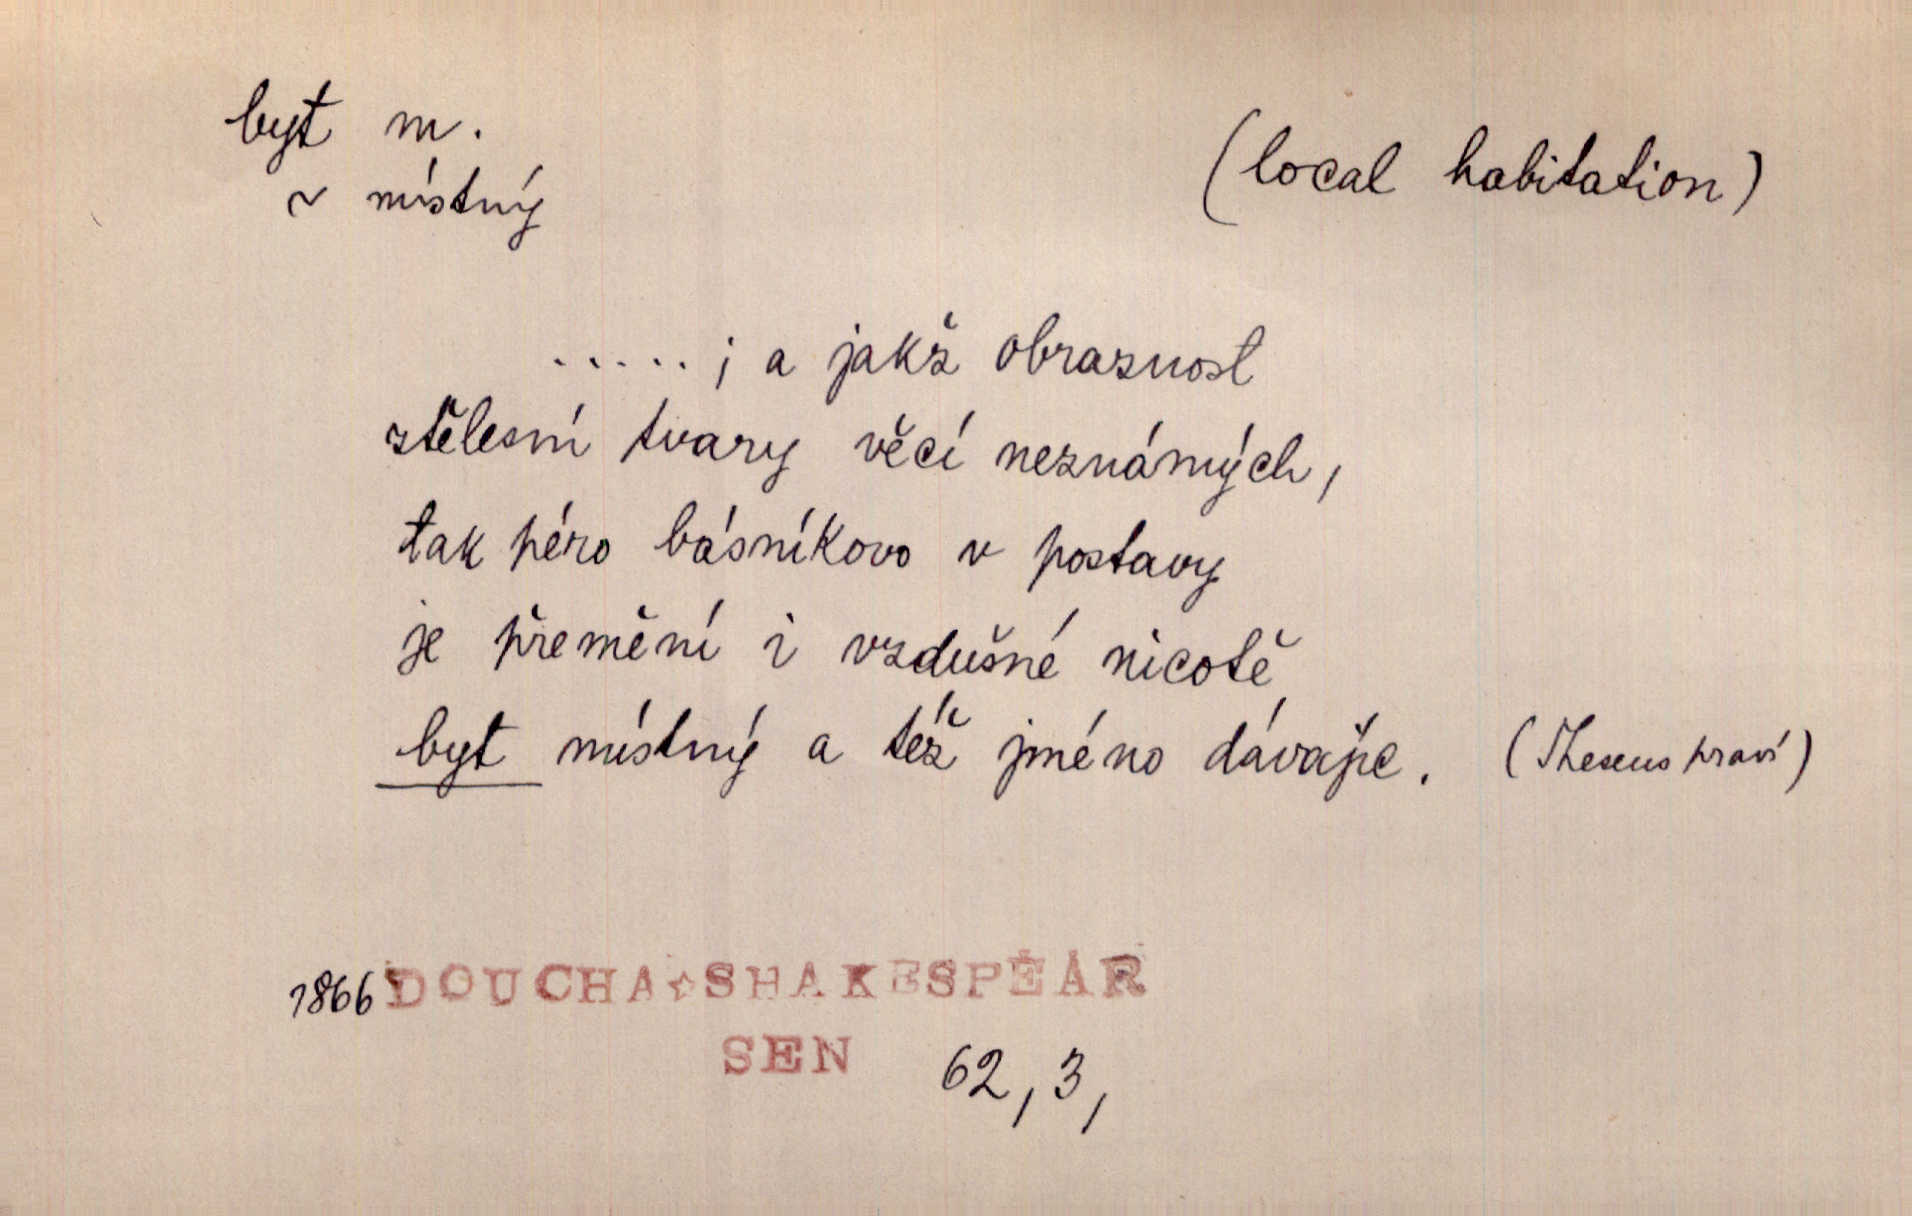 byt m.
~ místný
(local habitation)
.....; a jakž obraznost
ztělesní tvary věcí neznámých,
tak péro básníkovo v postavy
je přemění i vzdušné nicotě
byt místný a též jméno dávajíc. (Theseus praví)
1866 DOUCHA☆SHAKESPEAR
SEN 62, 3,